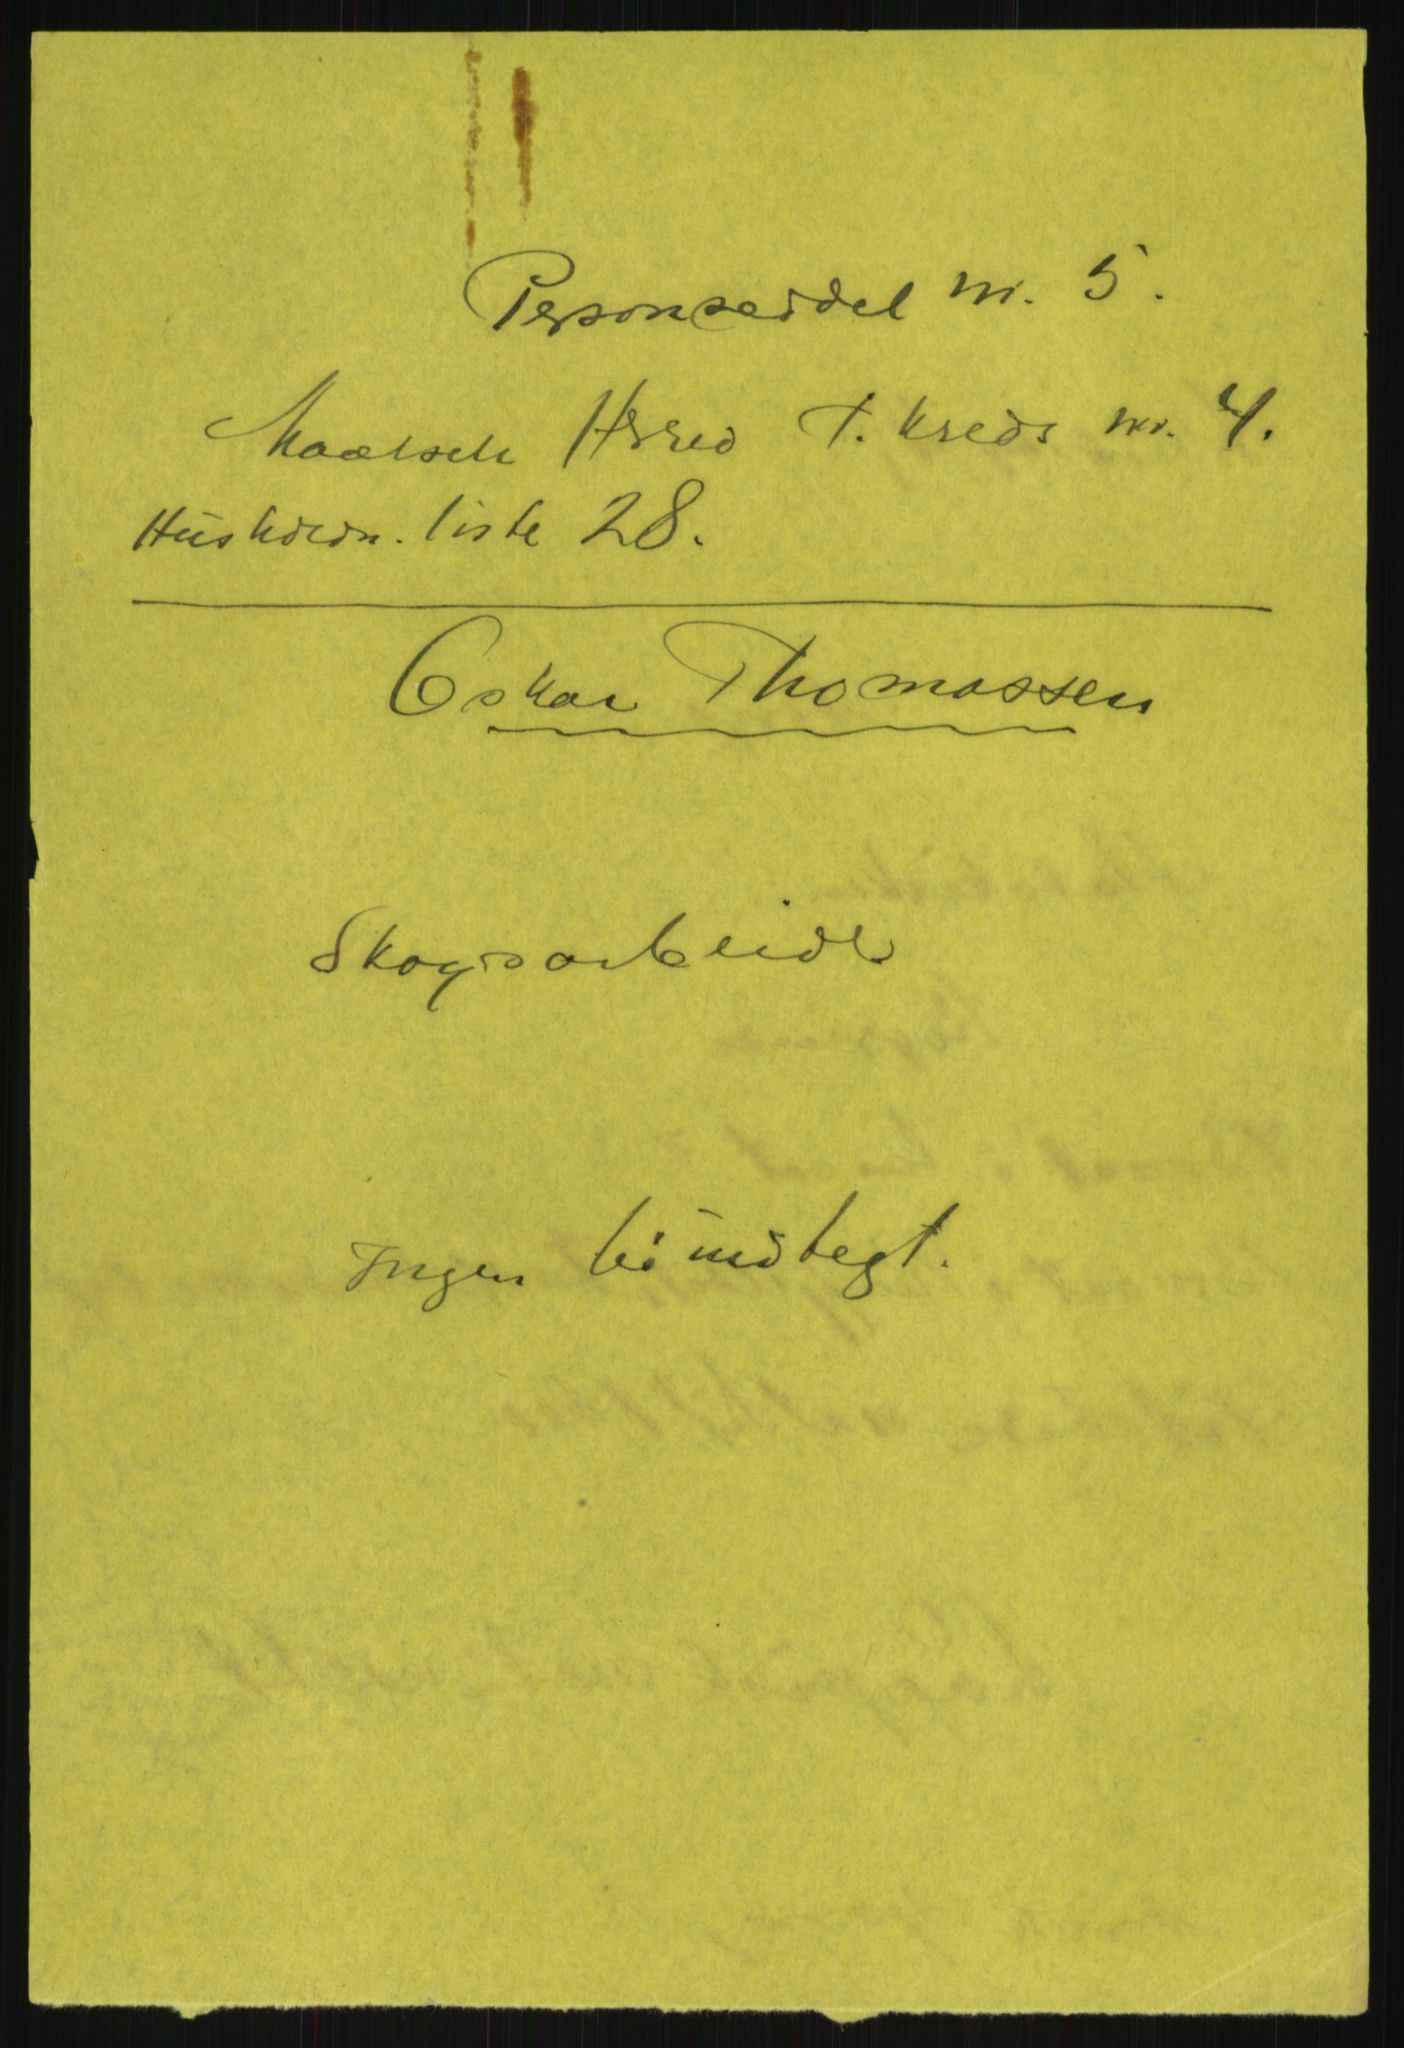 Personseddel nr. 5.
Maalselv Herred T. kreds nr. 4.
Hushdldn. liste 28.
Oskar Thomassen
Skogsarbeide
Ingen biindtegt.